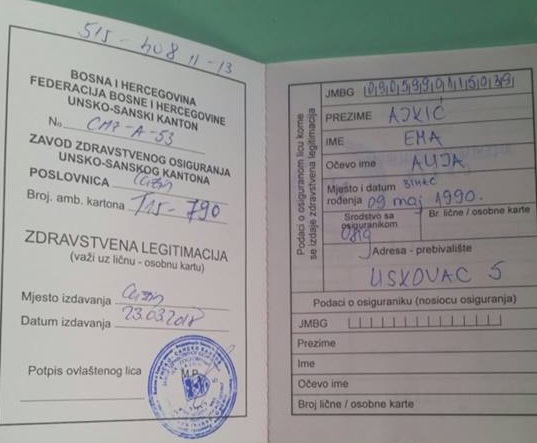 515-408 11-13
BOSNA I HERCEGOVINA
FEDERACIJA BOSNE I HERCEGOVINE
UNSKO-SANSKI KANTON
No CMP-A-53
ZAVOD ZDRAVSTVENOG OSIGURANJA
UNSKO-SANSKOG KANTONA
POSLOVNICA Cazin
Broj. amb. kartona 115-790
ZDRAVSTVENA LEGITIMACIJA
(važi uz ličnu - osobnu kartu)
Mjesto izdavanja Cazin
Datum izdavanja 23.03.2018
Potpis ovlaštenog lica M.P.
Podaci o osiguranom licu kome
se izdaje zdravstvena legitimacija
JMBG
PREZIME AJKIĆ
IME EMA
Očevo ime ALIJA
Mjesto i datum BIHAĆ
rođenja 09 maj 1990.
Srodstvo sa Br. lične / osobne karte
osiguranikom
Adresa - prebivalište
LISKOVAC 5
Podaci o osiguraniku (nosiocu osiguranja)
JMBG
Prezime
Ime
Očevo ime
Broj lične / osobne karte